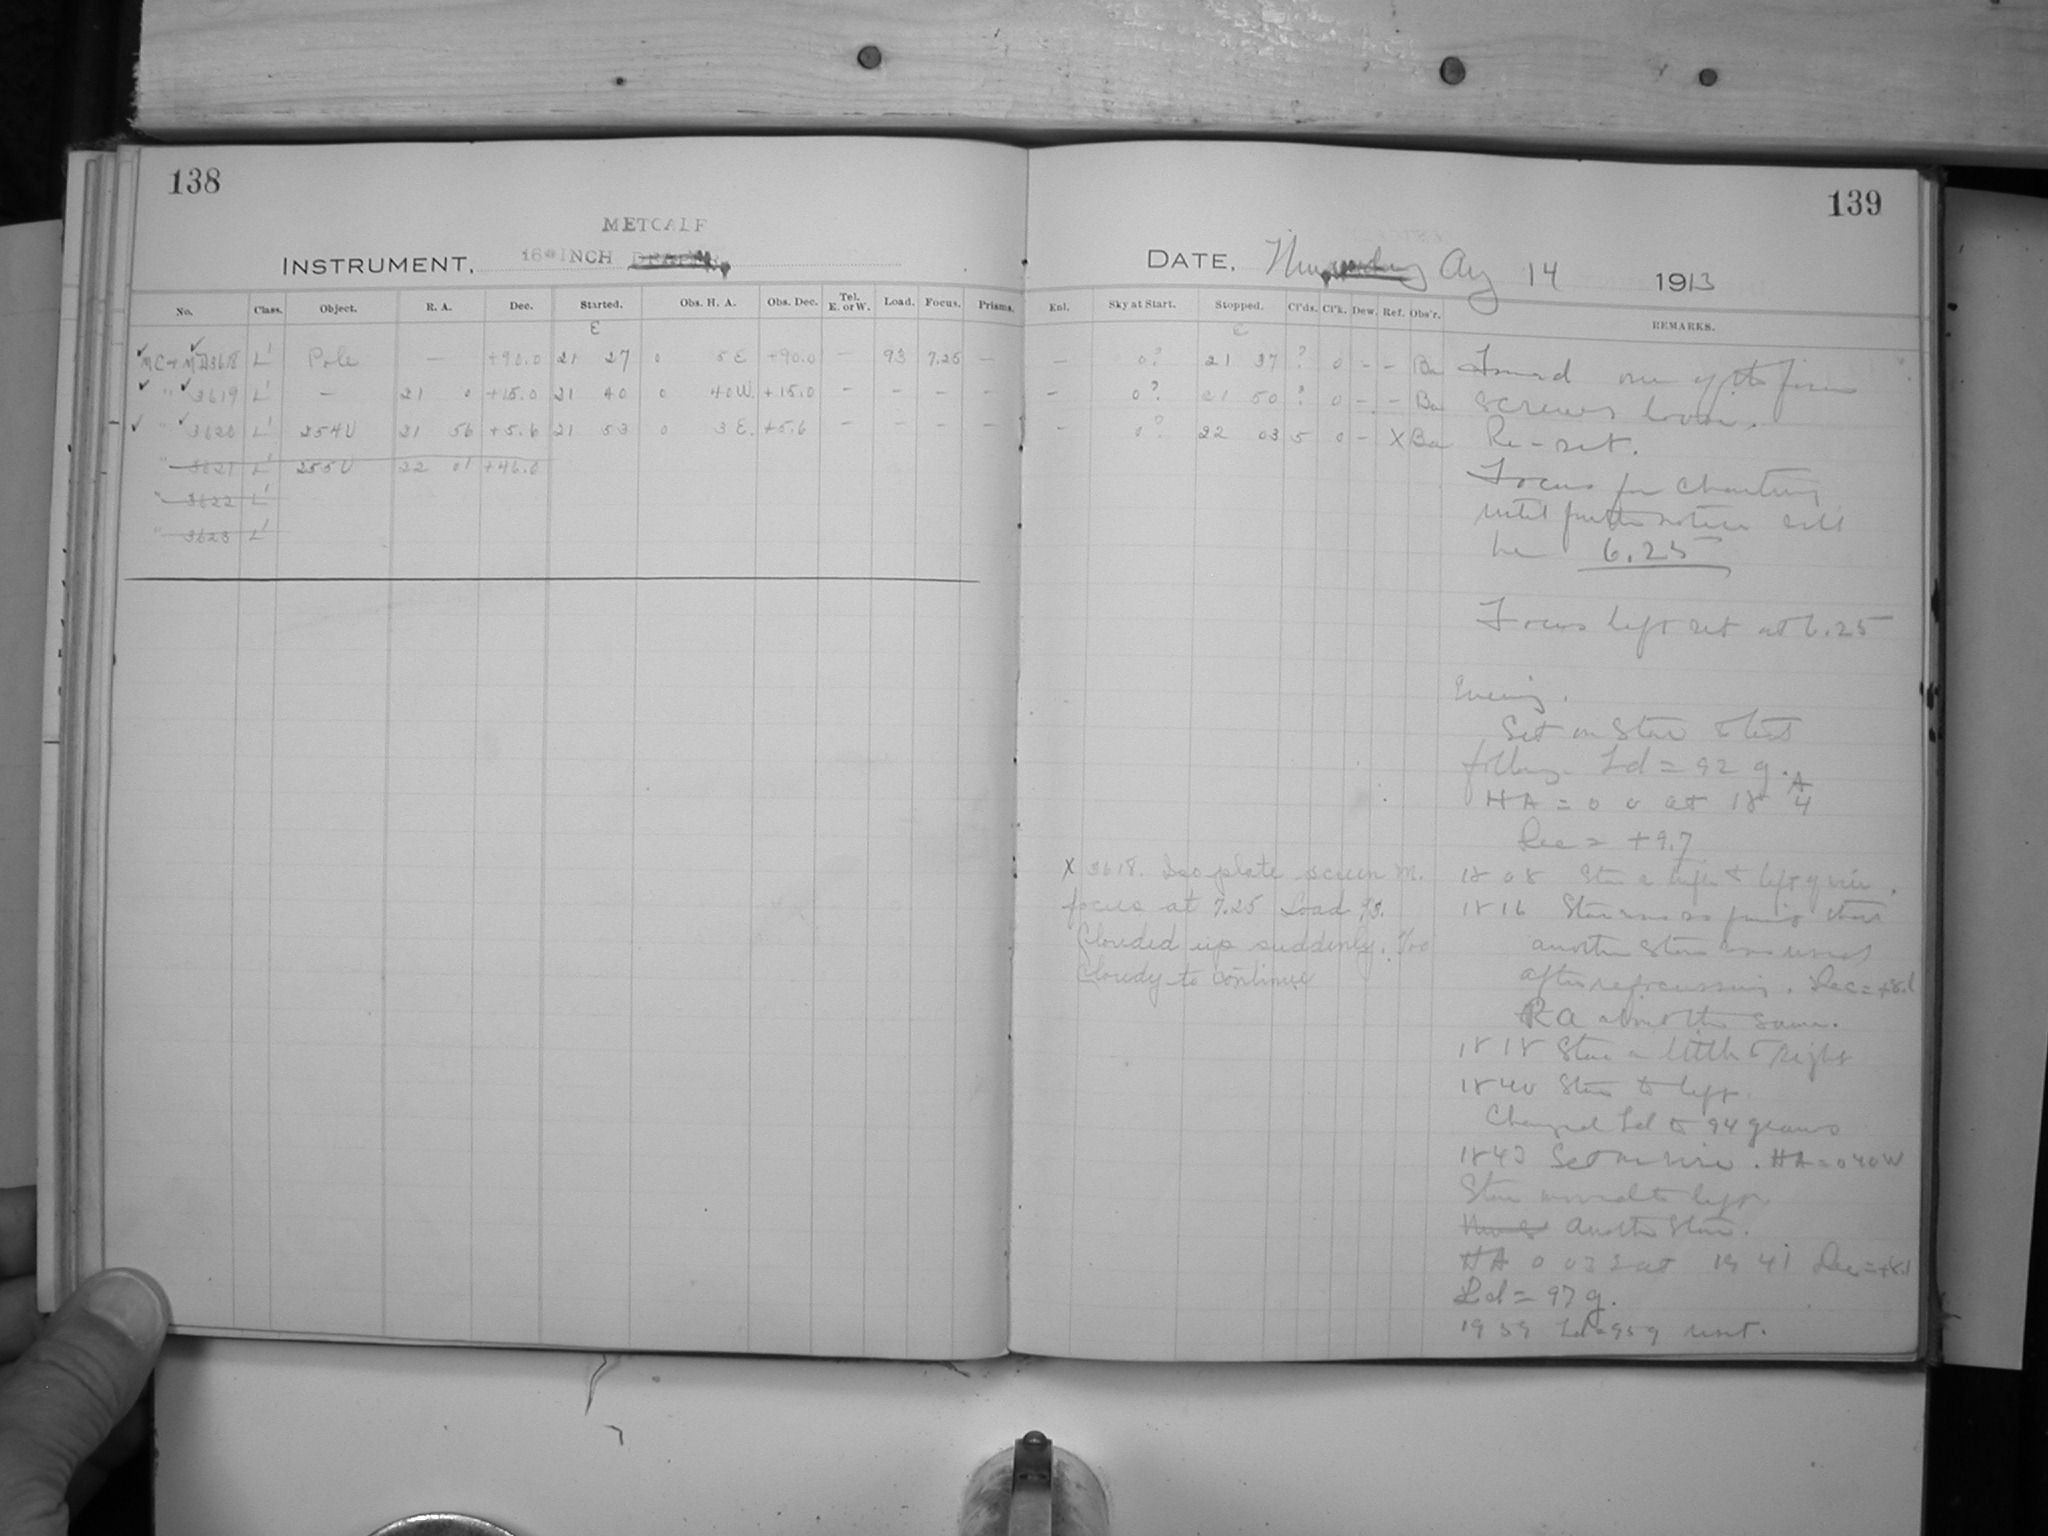 138
METCALF
INSTRUMENT, 16 INCH DRAPER,
No. Class. Object. R. A. Dec. Started. Obs. H. A. Obs. Dec. Tel. E. or W. Load. Focus. Prisms.
E
MC + MD3618 L' Pole — +90.0 21 27 0 5 E +90.0 — 93 7.25 —
" 3619 L' — 21 0 +15.0 21 40 0 40 W. +15.0 — — — —
" 3620 L' 254U 21 56 +5.6 21 53 0 3 E. +5.6 — — — —
" 3621 L' 255U 22 01 +46.0
" 3622 L'
" 3623 L'
139
DATE, Aug 14 1913
Enl. Sky at Start. Stopped. Cl'ds. Cl'k. Dew. Ref. Obs'r. REMARKS.
E
— 0? 21 37 ? 0 - - Ba Found one of the focus
— 0? 21 50 ? 0 - - Ba screws loose.
— 0? 22 03 5 0 - X Ba Re-set.
Focus for charting
until further notice will
be 6.25
Focus left set at 6.25
Evening.
Set on Star to test
following Ld = 92 g.
HA = 0 0 at 18 4
Dec = +9.7
X 3618. Iso plate screen M.
focus at 7.25 Load 93.
Clouded up suddenly. Too
Cloudy to continue
18 08 Star a trifle to left of wire.
18 16 Star was so faint that
another Star was used
after refocussing. Dec = +8.1
RA about the same.
18 18 Star a little to right
18 40 Star to left.
Changed Ld to 94 grams
18 43 Set on wire. HA = 0 40 W
Star moved to left
Another Star.
HA 0 03 at 19 41 Dec = +8.1
Ld = 97 g.
19 59 Ld = 95 g reset.